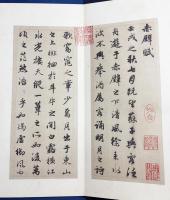 赤壁賦
壬戌之秋七月既望蘇子與客泛
舟遊于赤壁之下清風徐來水
波不興舉酒屬客誦明月之詩
歌窈窕之章少焉月出於東山
之上徘徊於斗牛之間白露橫江
水光接天縱一葦之所如凌萬
頃之茫然浩浩乎如馮虛御風而